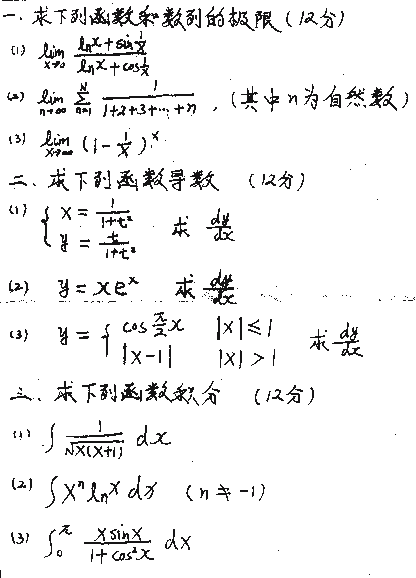 一、求下列函数和数列的极限(12分)
(1) lim x→0 (ln x + sin 1/x) / (ln x + cos 1/x)
(2) lim n→∞ Σ n=1 N 1/(1+2+3+…+n) ,(其中n为自然数)
(3) lim x→∞ (1 - 1/x)^x
二、求下列函数导数 (12分)
(1) { x = 1/(1+t²)
y = t/(1+t²) 求 dy/dx
(2) y = xe^x 求 dy/dx
(3) y = { cos π/2 x |x|≤1
|x-1| |x|>1 求 dy/dx
三、求下列函数积分 (12分)
(1) ∫ 1/√(x(x+1)) dx
(2) ∫ x^n ln x dx (n≠-1)
(3) ∫₀^π (x sin x)/(1+cos²x) dx